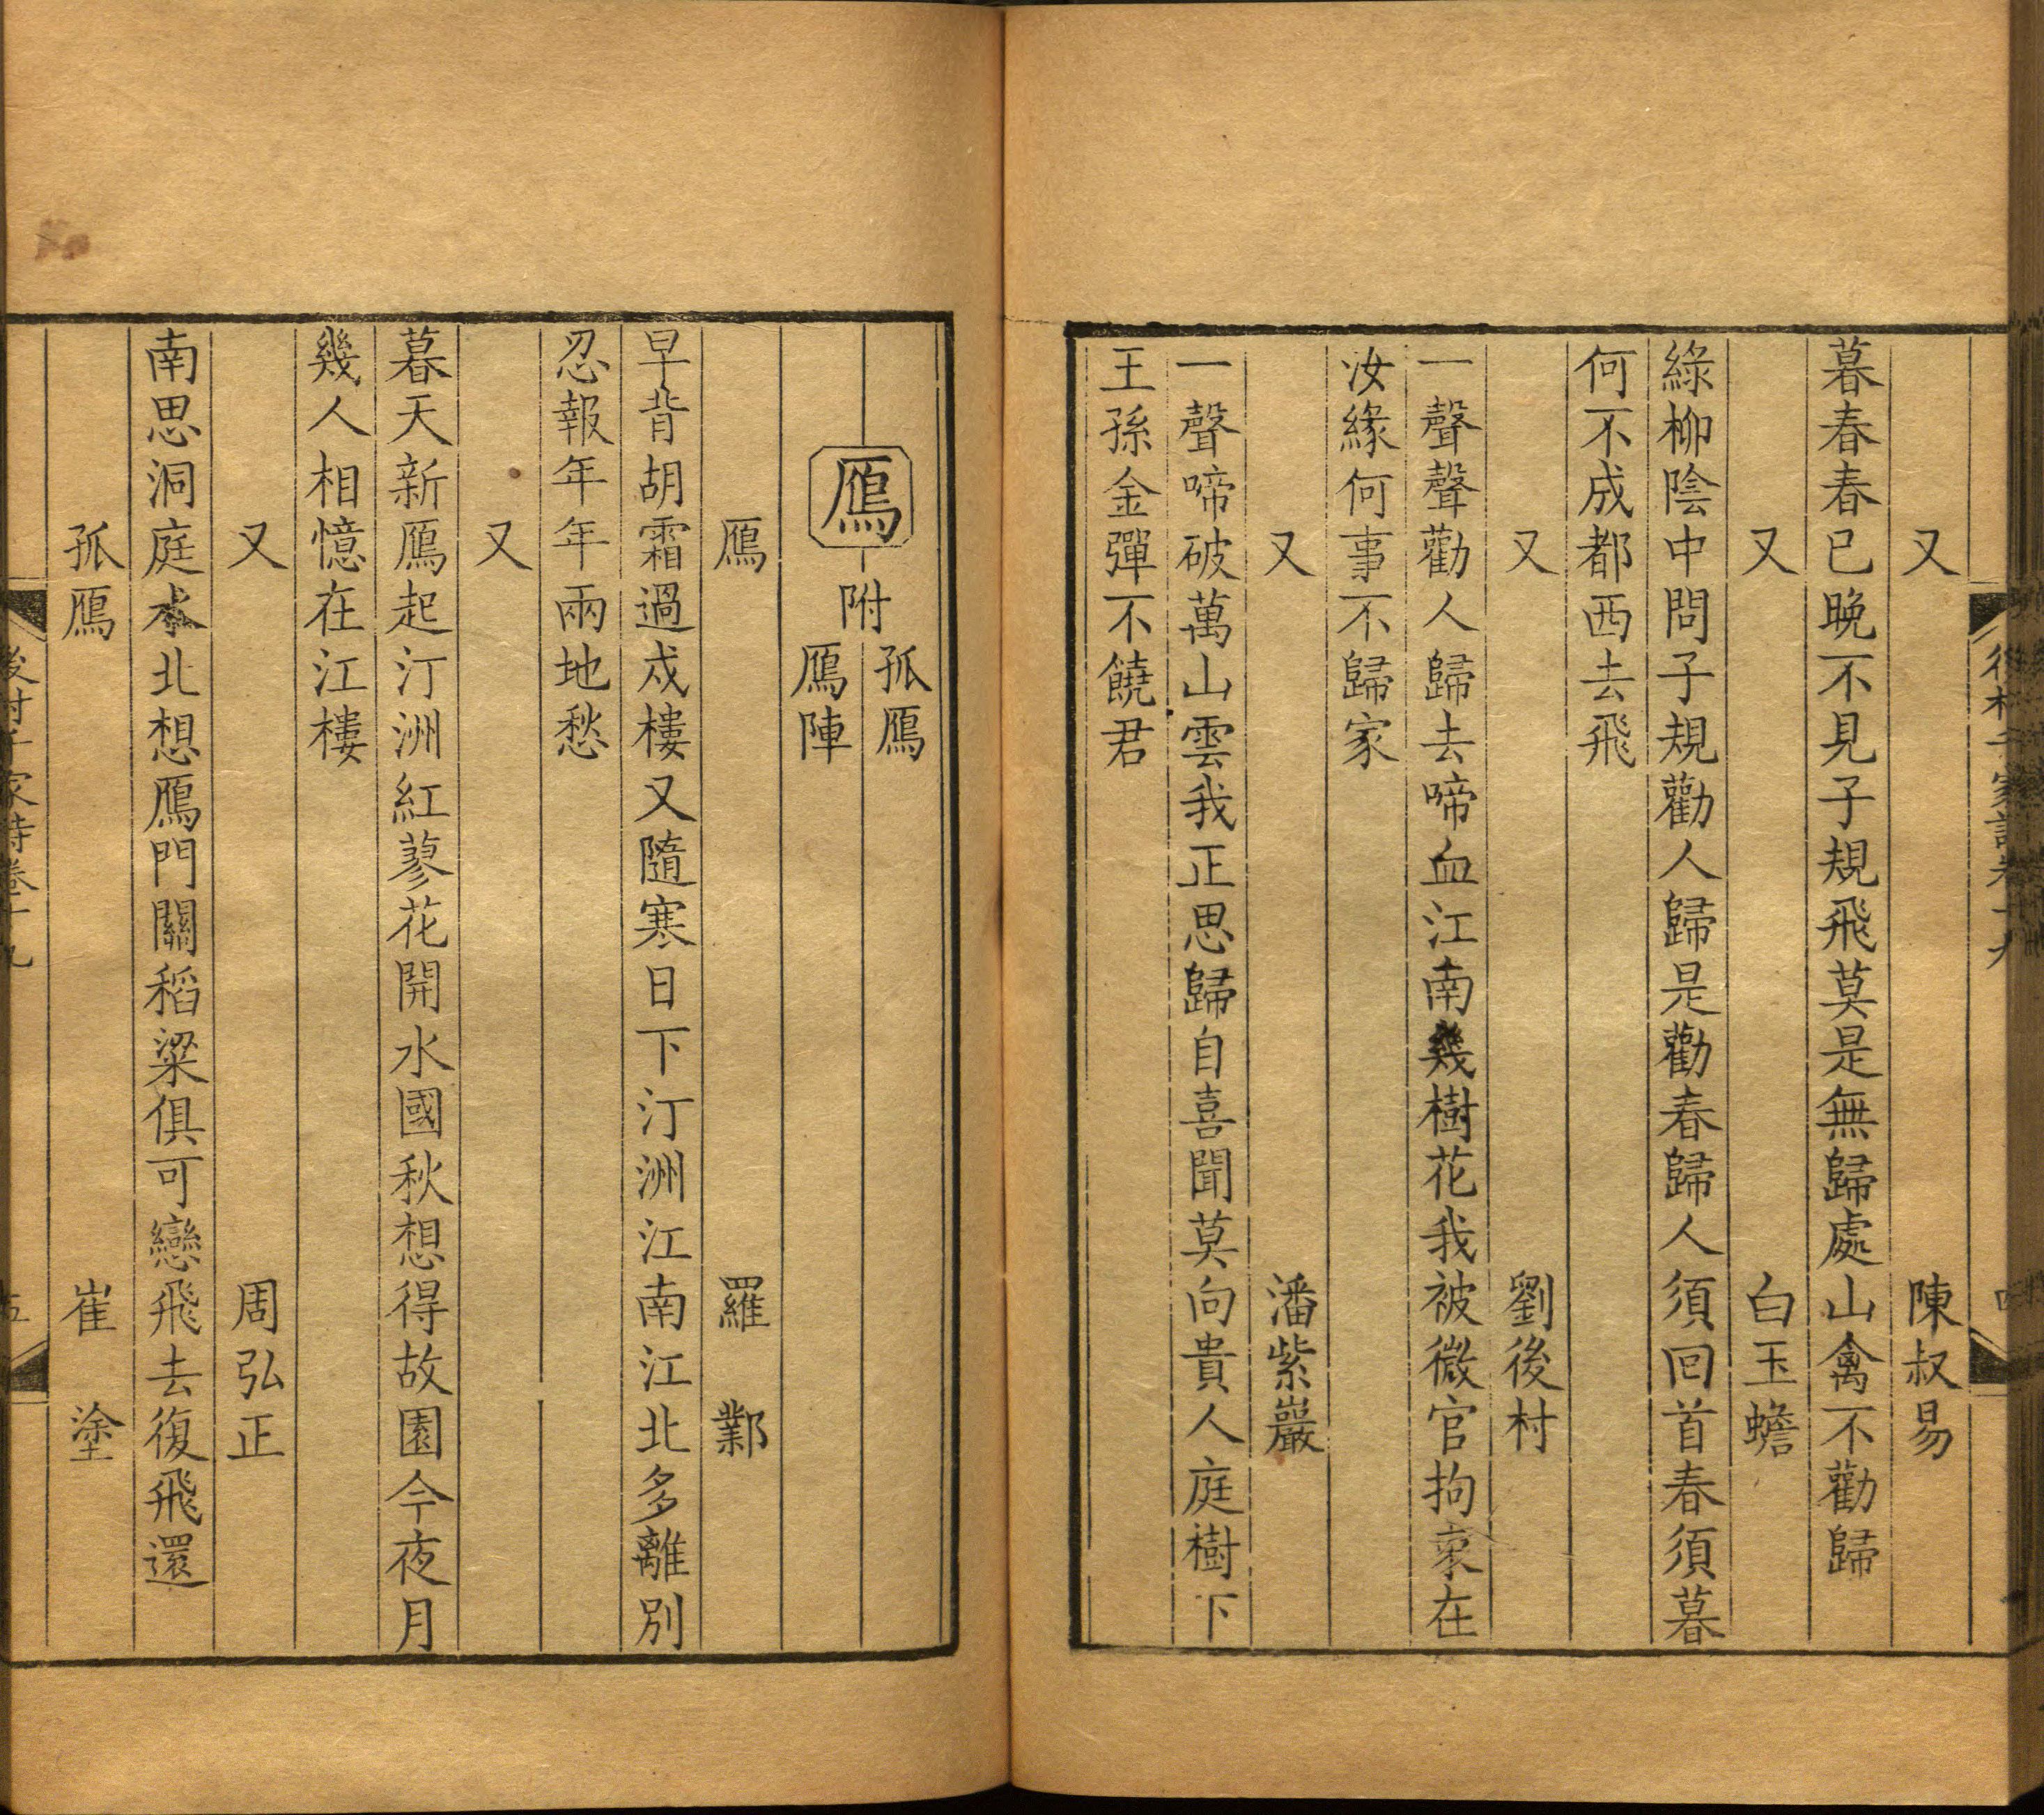 後村千家詩卷十九 四
又 陳叔易
暮春春已晚不見子規飛莫是無歸處山禽不勸歸
又 白玉蟾
綠柳陰中問子規勸人歸是勸春歸人須回首春須暮
何不成都西去飛
又 劉後村
一聲聲勸人歸去啼血江南幾樹花我被微官拘束在
汝緣何事不歸家
又 潘紫巖
一聲啼破萬山雲我正思歸自喜聞莫向貴人庭樹下
王孫金彈不饒君
鴈 附 孤鴈
鴈陣
鴈 羅鄴
早背胡霜過戍樓又隨寒日下汀洲江南江北多離別
忍報年年兩地愁
又
暮天新鴈起汀洲紅蓼花開水國秋想得故園今夜月
幾人相憶在江樓
又 周弘正
南思洞庭水北想鴈門關稻粱俱可戀飛去復飛還
孤鴈 崔塗
後村千家詩卷十九 五